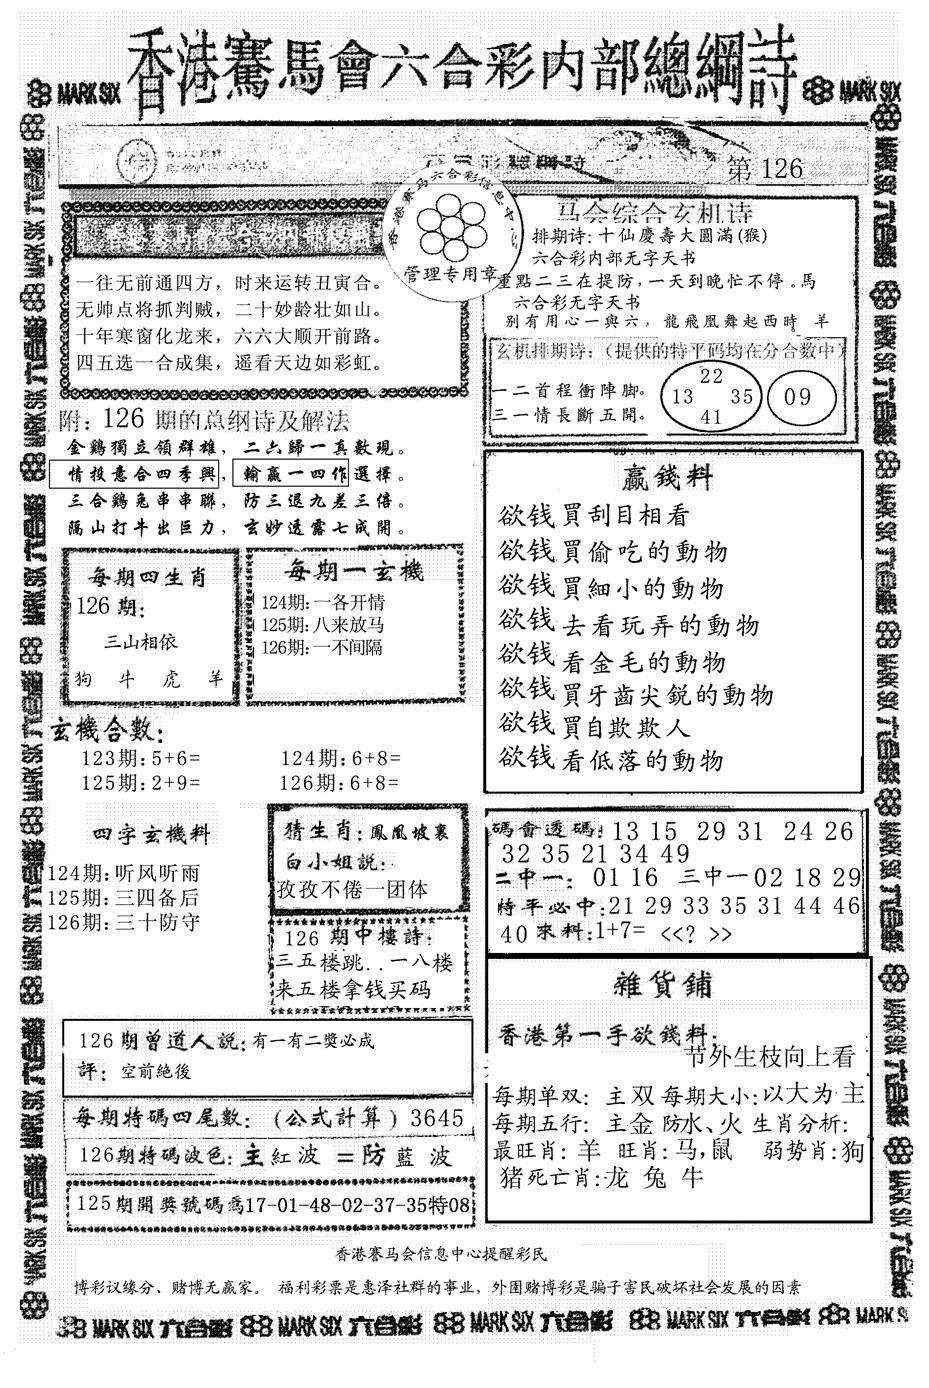 香港賽馬會六合彩内部總綱詩
MARK SIX
MARK SIX
第 126
香港赛马六合彩信息中心
管理专用章
一往无前通四方，时来运转丑寅合。
无帅点将抓判贼，二十妙龄壮如山。
十年寒窗化龙来，六六大顺开前路。
四五选一合成集，遥看天边如彩虹。
马会综合玄机诗
排期诗: 十仙慶壽大圓滿(猴)
六合彩内部无字天书
重點二三在提防，一天到晚忙不停。馬
六合彩无字天书
别有用心一與六，龍飛凰舞起西時 羊
玄机排期诗：（提供的特平码均在分合数中）
一二首程衝陣脚。
三一情長斷五開。
22
13 35
41
09
附：126 期的总纲诗及解法
金鷄獨立領群雄，二六歸一真數現。
情投意合四季興，輸贏一四作選擇。
三合鷄兔串串聯，防三退九差三倍。
隔山打牛出巨力，玄妙透露七成開。
每期四生肖
126 期:
三山相依
狗 牛 虎 羊
每期一玄機
124期: 一各开情
125期: 八来放马
126期: 一不间隔
赢錢料
欲钱買刮目相看
欲钱買偷吃的動物
欲钱買細小的動物
欲钱去看玩弄的動物
欲钱看金毛的動物
欲钱買牙齒尖銳的動物
欲钱買自欺欺人
欲钱看低落的動物
玄機合數:
123期: 5+6= 124期: 6+8=
125期: 2+9= 126期: 6+8=
四字玄機料
124期: 听风听雨
125期: 三四备后
126期: 三十防守
猜生肖: 鳳凰坡裏
白小姐説:
孜孜不倦一团体
126 期中樓詩:
三五楼跳..一八楼
来五楼拿钱买码
碼會透碼: 13 15 29 31 24 26
32 35 21 34 49
二中一: 01 16 三中一 02 18 29
特平必中: 21 29 33 35 31 44 46
40 來料: 1+7= <<? >>
雜貨鋪
香港第一手欲錢料:
节外生枝向上看
每期单双: 主 双 每期大小: 以大为主
每期五行: 主金 防水、火 生肖分析:
最旺肖: 羊 旺肖: 马，鼠 弱势肖: 狗
猪 死亡肖: 龙 兔 牛
126期曾道人説: 有一有二獎必成
評: 空前絶後
每期特碼四尾數: (公式計算) 3645
126期特碼波色: 主 紅波 =防 藍波
125期開奬號碼爲17-01-48-02-37-35特08
香港赛马会信息中心提醒彩民
博彩议缘分、赌博无赢家。 福利彩票是惠泽社群的事业，外围赌博彩是骗子害民破坏社会发展的因素
MARK SIX 六合彩 MARK SIX 六合彩 MARK SIX 六合彩 MARK SIX 六合彩 MARK SIX